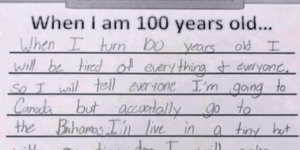 When I am 100 years old...
When I turn 100 years old I
will be tired of everything & everyone.
So I will tell everyone I'm going to
Canada but accuatally go to
the Bahamas. I'll live in a tiny hut